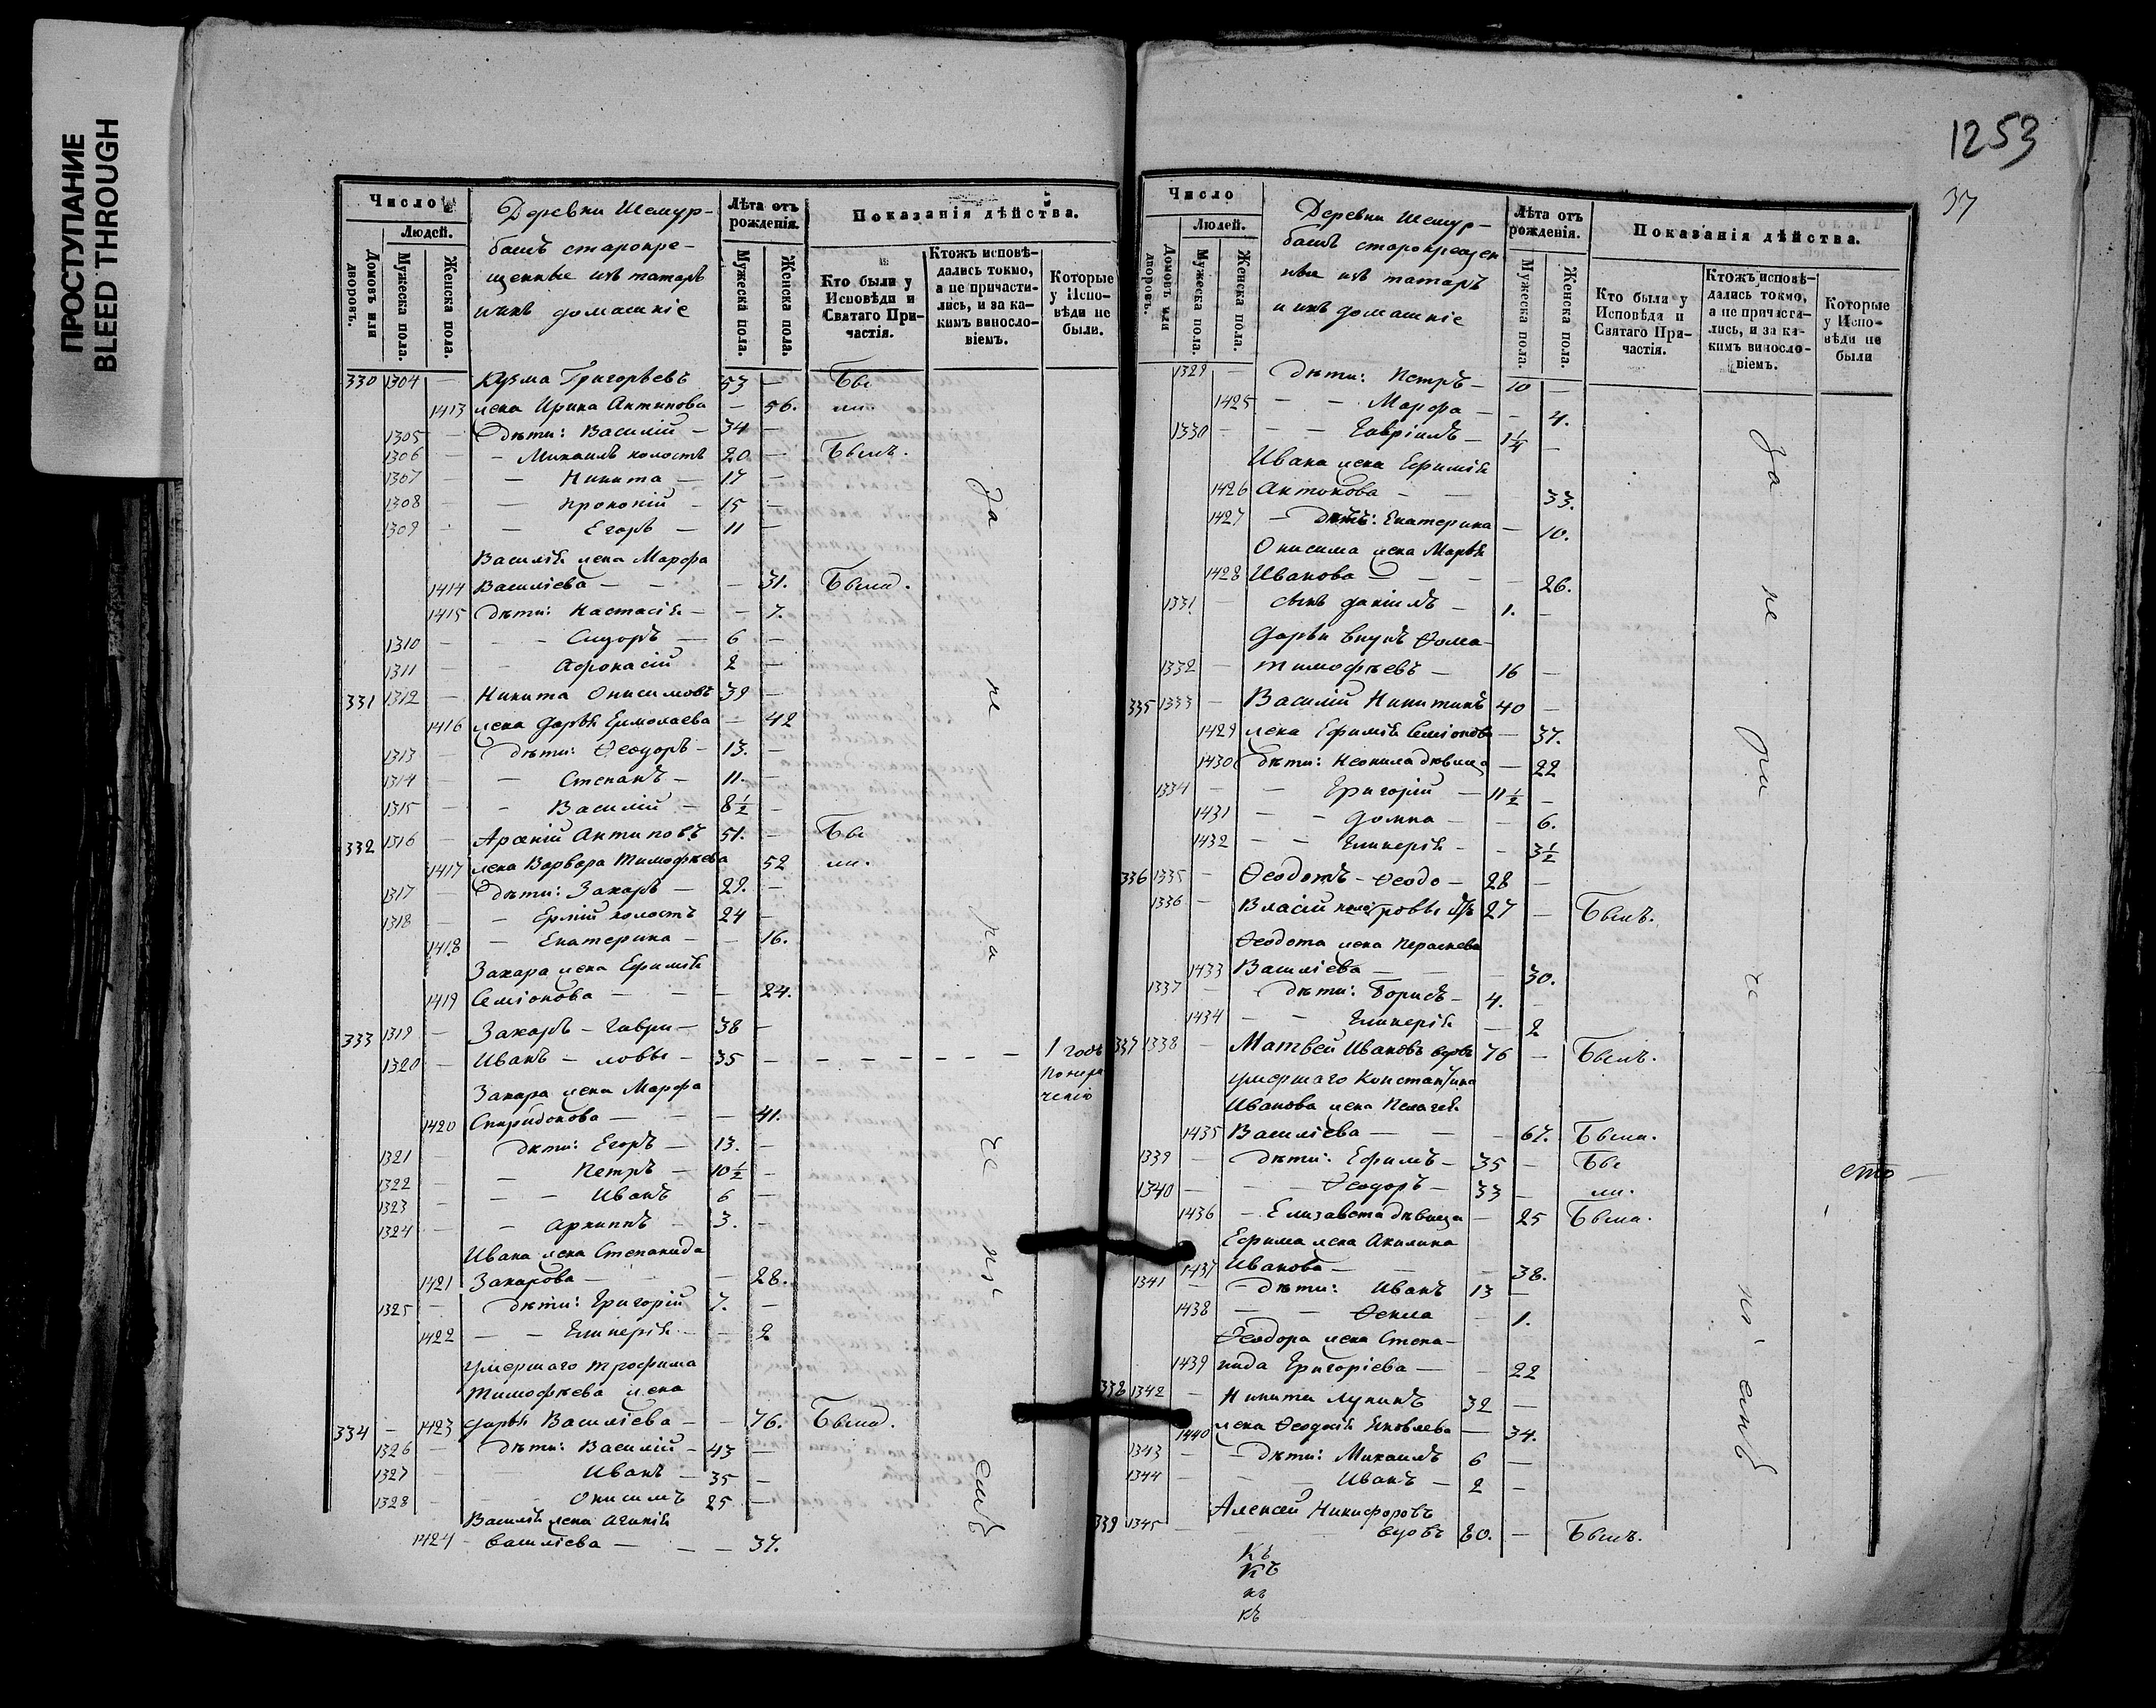 ПРОСТУПАНИЕ
BLEED THROUGH
1253
37
Число
Людей.
Домовъ или дворовъ.
Мужеска пола.
Женска пола.
Деревни Шемур-
башъ старокре-
щенные изъ татаръ
и ихъ домашніе
Лѣта отъ рожденія.
Мужеска пола.
Женска пола.
Показанія дѣйства.
Кто были у Исповѣди и Святаго Причастія.
Ктожъ исповѣ-
дались токмо,
а не причасти-
лись, и за ка-
кимъ виносло-
віемъ.
Которые
у Испо-
вѣди не
были.
330 1304 — Кузма Григорьевъ 53 — Бы
1413 жена Ирина Антипова — 56. ли.
1305 — Дѣти: Василій — 34 —
1306 — Михаилъ холостъ 20 — Былъ.
1307 — Никита — 17 —
1308 — Прокопій — 15 —
1309 — Егоръ — 11 —
Василія жена Марфа
1414 Василіева — — 31. Была.
1415 Дѣти: Настасія — — 7.
1310 — — Сидоръ — 6 —
1311 — — Афонасій 2 —
331 1312 — Никита Онисимовъ 39 —
1416 жена Дарья Ермолаева — 42
1313 — Дѣти: Ѳеодоръ — 13. —
1314 — — Степанъ — 11. —
1315 — — Василій — 8½ —
332 1316 — Арсеній Антиповъ 51. — Бы
1417 жена Варвара Тимофѣева 52 ли.
1317 — Дѣти: Захаръ — 29. —
1318 — — Ермій холостъ 24 —
1418 — Екатерина — — 16.
Захара жена Ефимія
1419 Семіонова — — — 24.
333 1319 — Захаръ — Гаври — 38 —
1320 — Иванъ — ловы — 35 — — — — — — — 1 годъ
Захара жена Марфа
1420 Спиридонова — — — 41.
1321 — Дѣти: Егоръ — 13. —
1322 — — Петръ — 10½ —
1323 — — — Иванъ 6 —
1324 — — Архиппъ — 3. —
Ивана жена Степанида
1421 Захарова — — — 28.
1325 — Дѣти: Григорій 7. —
1422 — — Гликерія — — 2
умершаго Трофима
Тимофѣева жена
334 — 1423 Дарья Василіева — — 76. Была.
1326 — Дѣти: Василій — 43 —
1327 — Иванъ — 35 —
1328 — — Онисимъ 25 —
Василія жена Агапія
1424 — Василіева — — — 37.
За не ра че ні емъ
Число
Людей.
Домовъ или дворовъ.
Мужеска пола.
Женска пола.
Деревни Шемур-
башъ старокрещен
ные изъ татаръ
и ихъ домашніе
Лѣта отъ рожденія.
Мужеска пола.
Женска пола.
Показанія дѣйства.
Кто были у Исповѣди и Святаго Причастія.
Ктожъ исповѣ-
дались токмо,
а не причасти-
лись, и за ка-
кимъ виносло-
віемъ.
Которые
у Испо-
вѣди не
были
1329 — Дѣти: Петръ — 10 —
1425 — — Марфа — — 4.
1330 — — — Гавріилъ — 1¼ —
Ивана жена Ефимія
1426 Антонова — — 33.
1427 — Дочь: Екатерина — 10.
Онисима жена Марья
1428 Иванова — — — — 26.
1331. — сынъ Даніилъ — 1. —
Дарьи внукъ Ѳома —
1332 — Тимофѣевъ — 16 —
335 1333 — Василій Никитинъ 40 —
1429 жена Ефимія Семіонова — 37.
1430 Дѣти: Неонила дѣвица — 22
1334 — — Григорій — 11½ —
1431 — — Домна — — 6.
1432 — — Гликерія — — 3½
336 1335 — Ѳеодотъ — Ѳедо — 28 —
1336 — Власій ровы 27 — Былъ.
Ѳеодота жена Параскева
1433 Василіева — — — 30.
1337 — Дѣти: Борисъ — 4. —
1434 — — Гликерія — 2
337 1338 — Матвей Ивановъ вдовъ 76 — Былъ.
умершаго Константина
Иванова жена Пелагея
1435 Василіева — — — 67. Была.
1339 — Дѣти: Ефимъ — 35 — Бы
1340 — — — Ѳеодоръ — 33 — ли.
1436 — Елизавета дѣвица — 25 Была.
Ефима жена Акилина
1437 Иванова — — — 38.
1341 — — Дѣти: Иванъ 13 —
1438 — — Ѳекла — 1.
Ѳеодора жена Степа—
1439 нида Григоріева — — 22
338 1342 — Никита Лукинъ 32 —
1440 жена Ѳеодосія Яковлева — 34.
1343 — — Дѣти: Михаилъ 6 —
1344 — — — Иванъ — 2 —
Алексей Никифоровъ
339 1345 — вдовъ 80. — Былъ.
За не ра че ні емъ
Къ
Къ
къ
къ